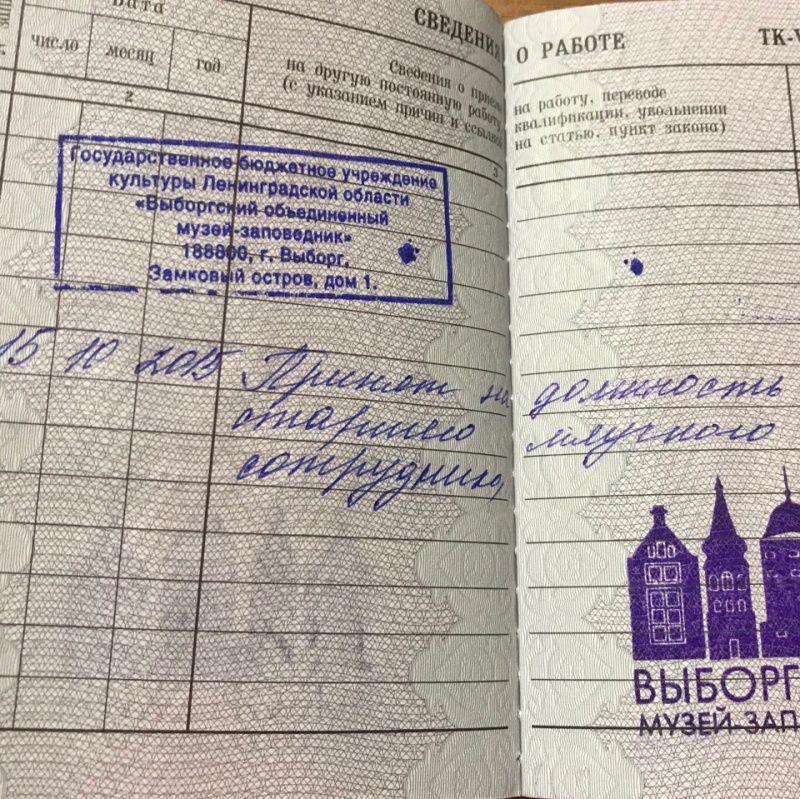 Дата
СВЕДЕНИЯ О РАБОТЕ ТК-V
число месяц год
Сведения о прие
на другую постоянную работу
(с указанием причин и ссылкой
на работу, переводе
квалификации, увольнении
на статью, пункт закона)
2 3
Государственное бюджетное учреждение
культуры Ленинградской области
«Выборгский объединенный
музей-заповедник»
188800, г. Выборг,
Замковый остров, дом 1.
15 10 2015 Принят на должность
старшего научного
сотрудника
ВЫБОРГ
МУЗЕЙ ЗАП